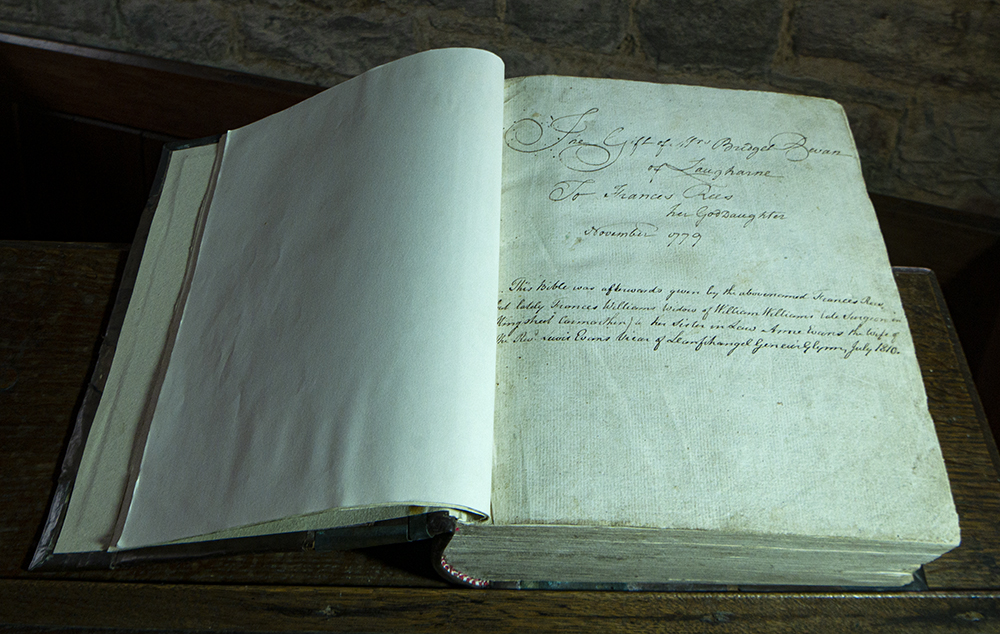 The Gift of Mrs Bridget Bevan
of Laugharne
To Francis Rees
her GodDaughter
November 1779
This Bible was afterwards given by the abovenamed Frances Rees
but lately Frances Williams Widow of William Williams late Surgeon in
King street Carmarthen) to her Sister in Law Anne Evans the wife of
the Revd Lewis Evans Vicar of Llanfihangel Geneu'r Glynn, July 1810.